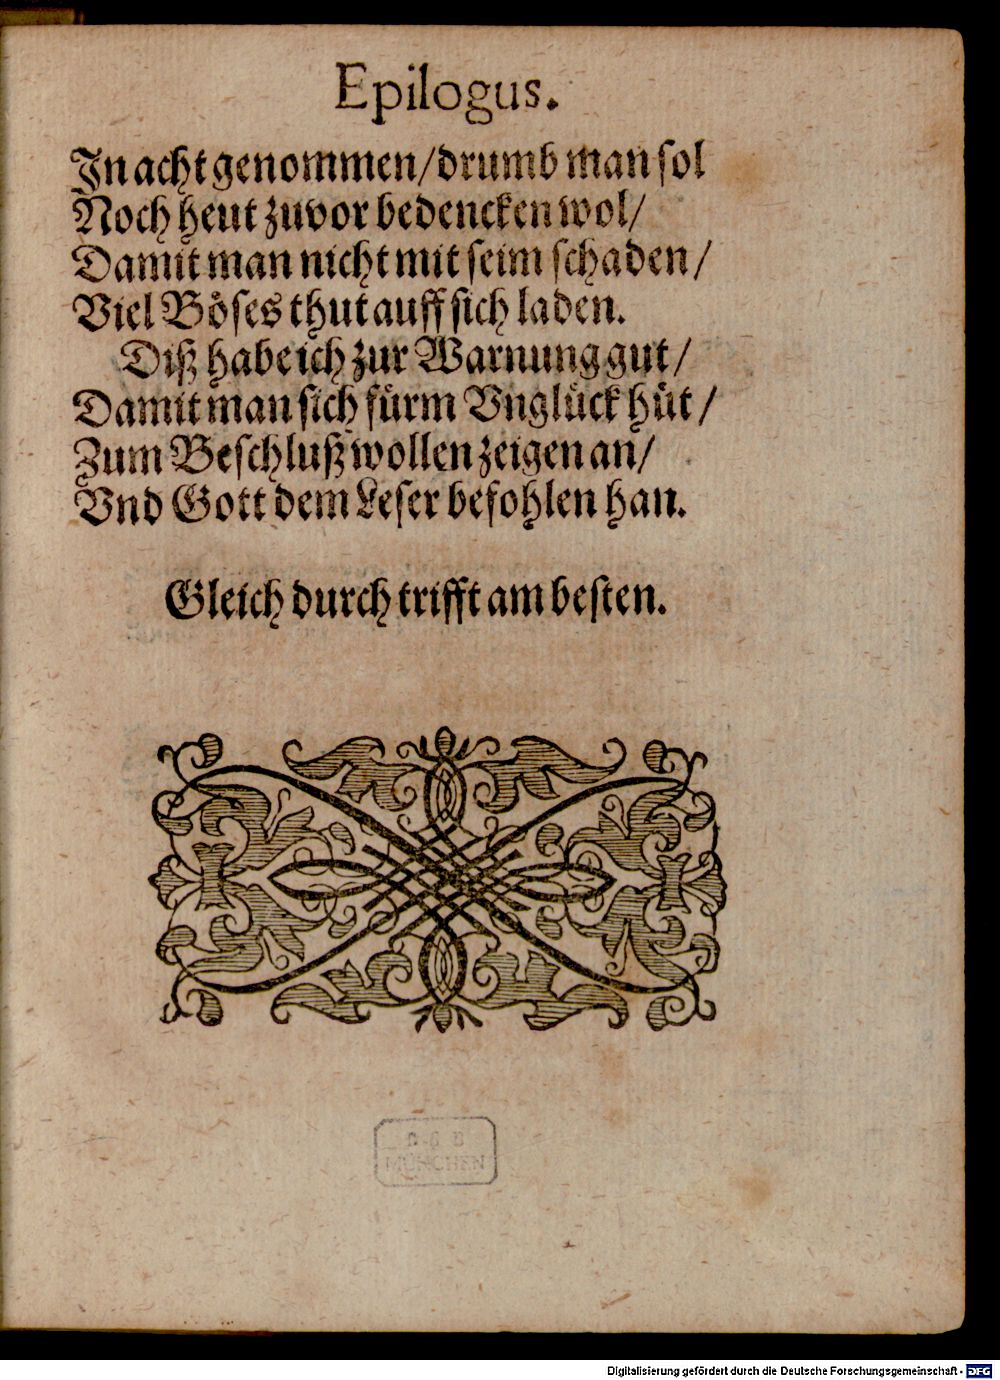 Epilogus.
In acht genommen/ drumb man sol
Noch heut zuvor bedencken wol/
Damit man nicht mit seim schaden/
Viel Böses thut auff sich laden.
Diß habe ich zur Warnung gut/
Damit man sich fürm Vnglück hüt/
Zum Beschluß wollen zeigen an/
Vnd Gott dem Leser befohlen han.
Gleich durch trifft am besten.
MÜNCHEN
Digitalisierung gefördert durch die Deutsche Forschungsgemeinschaft - DFG